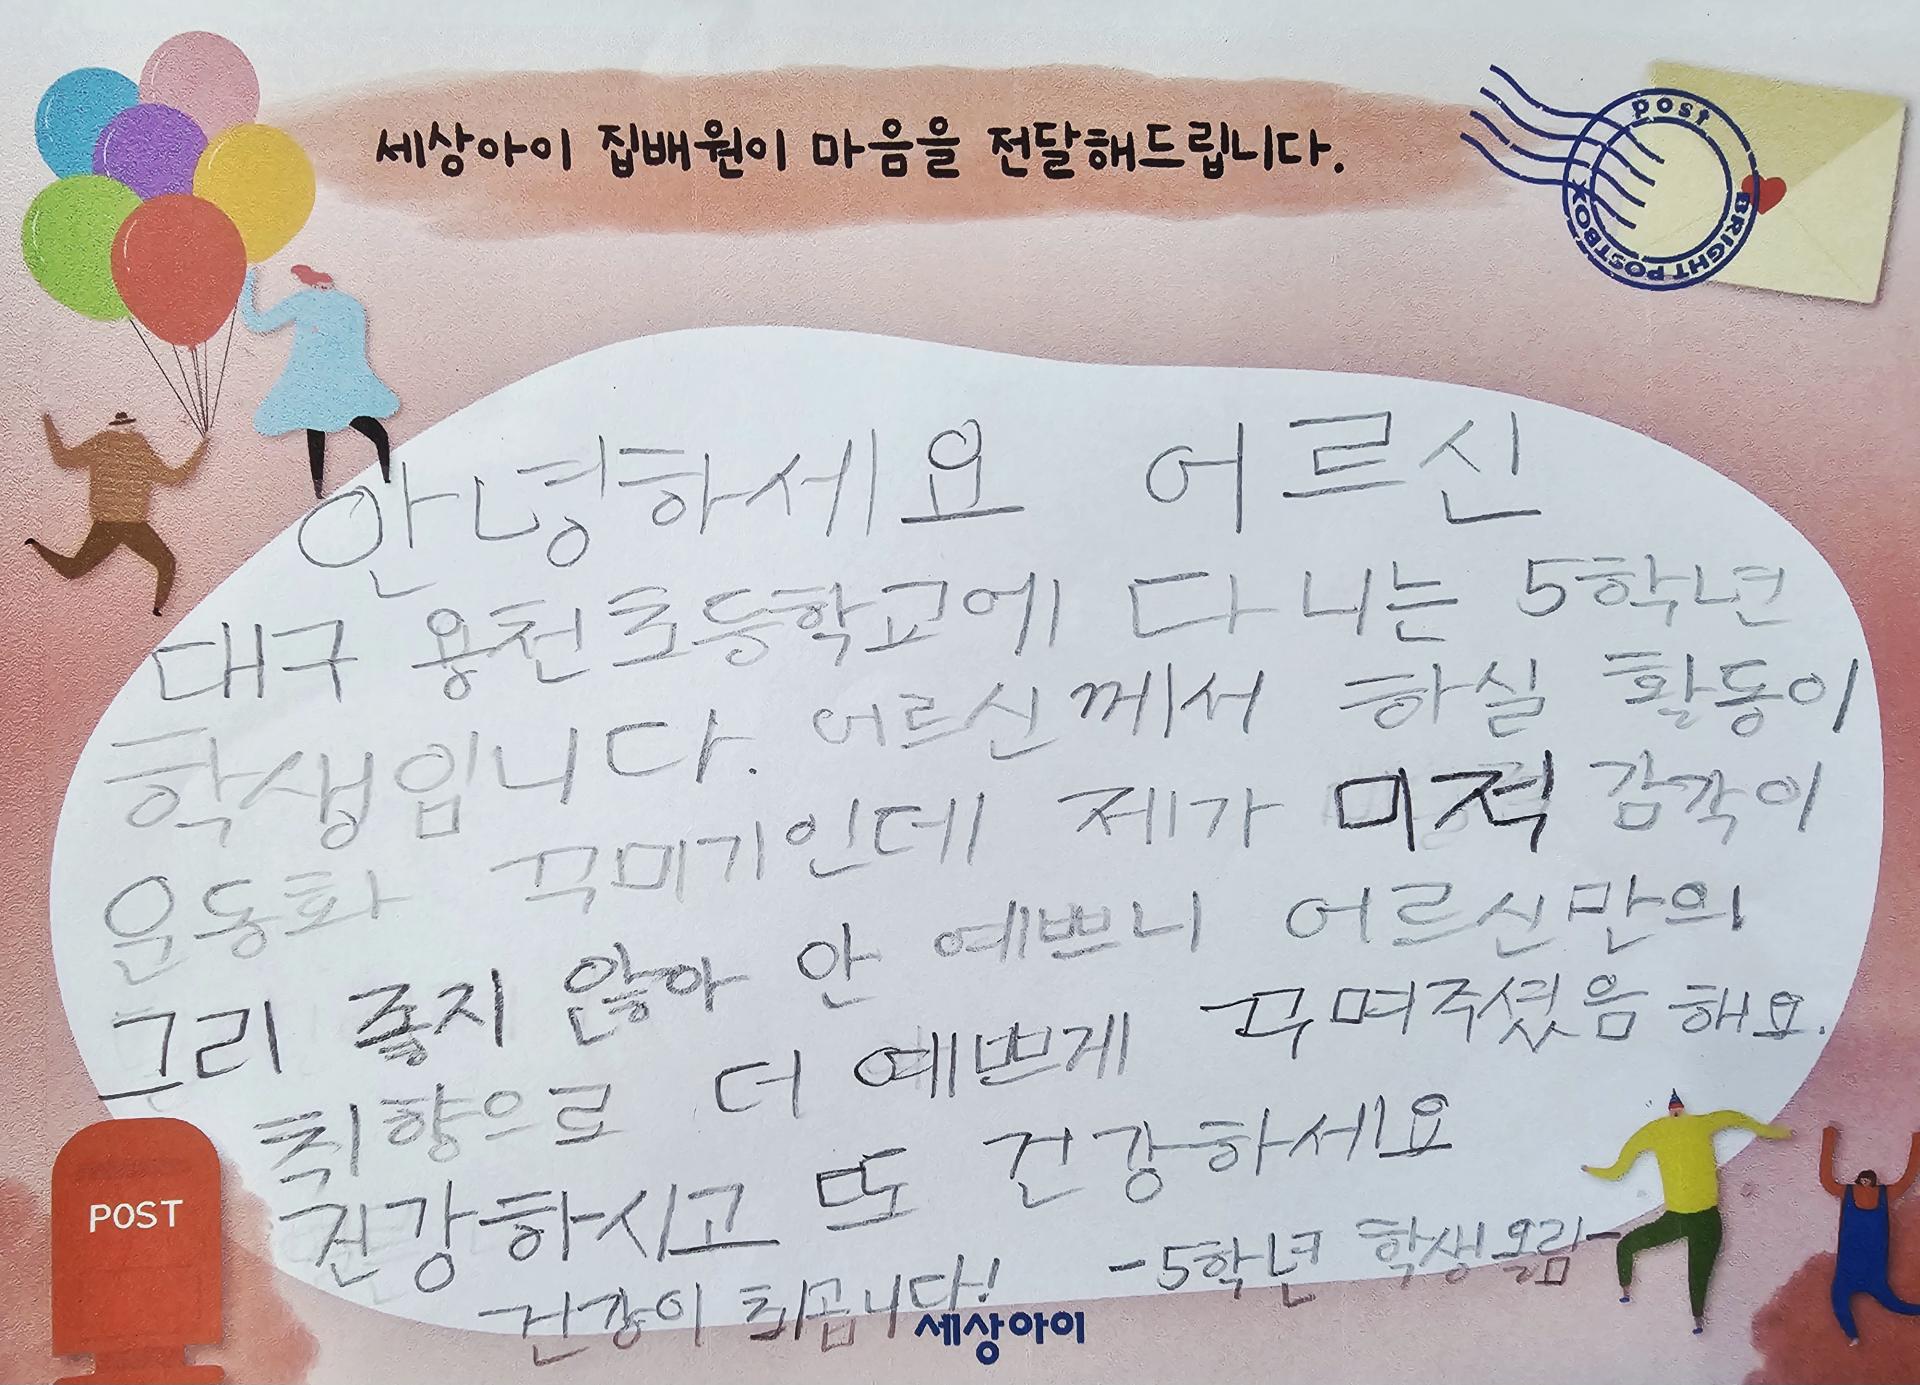 세상아이 집배원이 마음을 전달해드립니다.
post
BRIGHT POSTBOX
안녕하세요 어르신
대구 용천초등학교에 다니는 5학년
학생입니다. 어르신께서 하실 활동이
운동화 꾸미기인데 제가 미적 감각이
그리 좋지 않아 안 예쁘니 어르신만의
취향으로 더 예쁘게 꾸며주셨음 해요.
건강하시고 또 건강하세요
건강이 최곱니다! -5학년 학생올림-
POST
세상아이